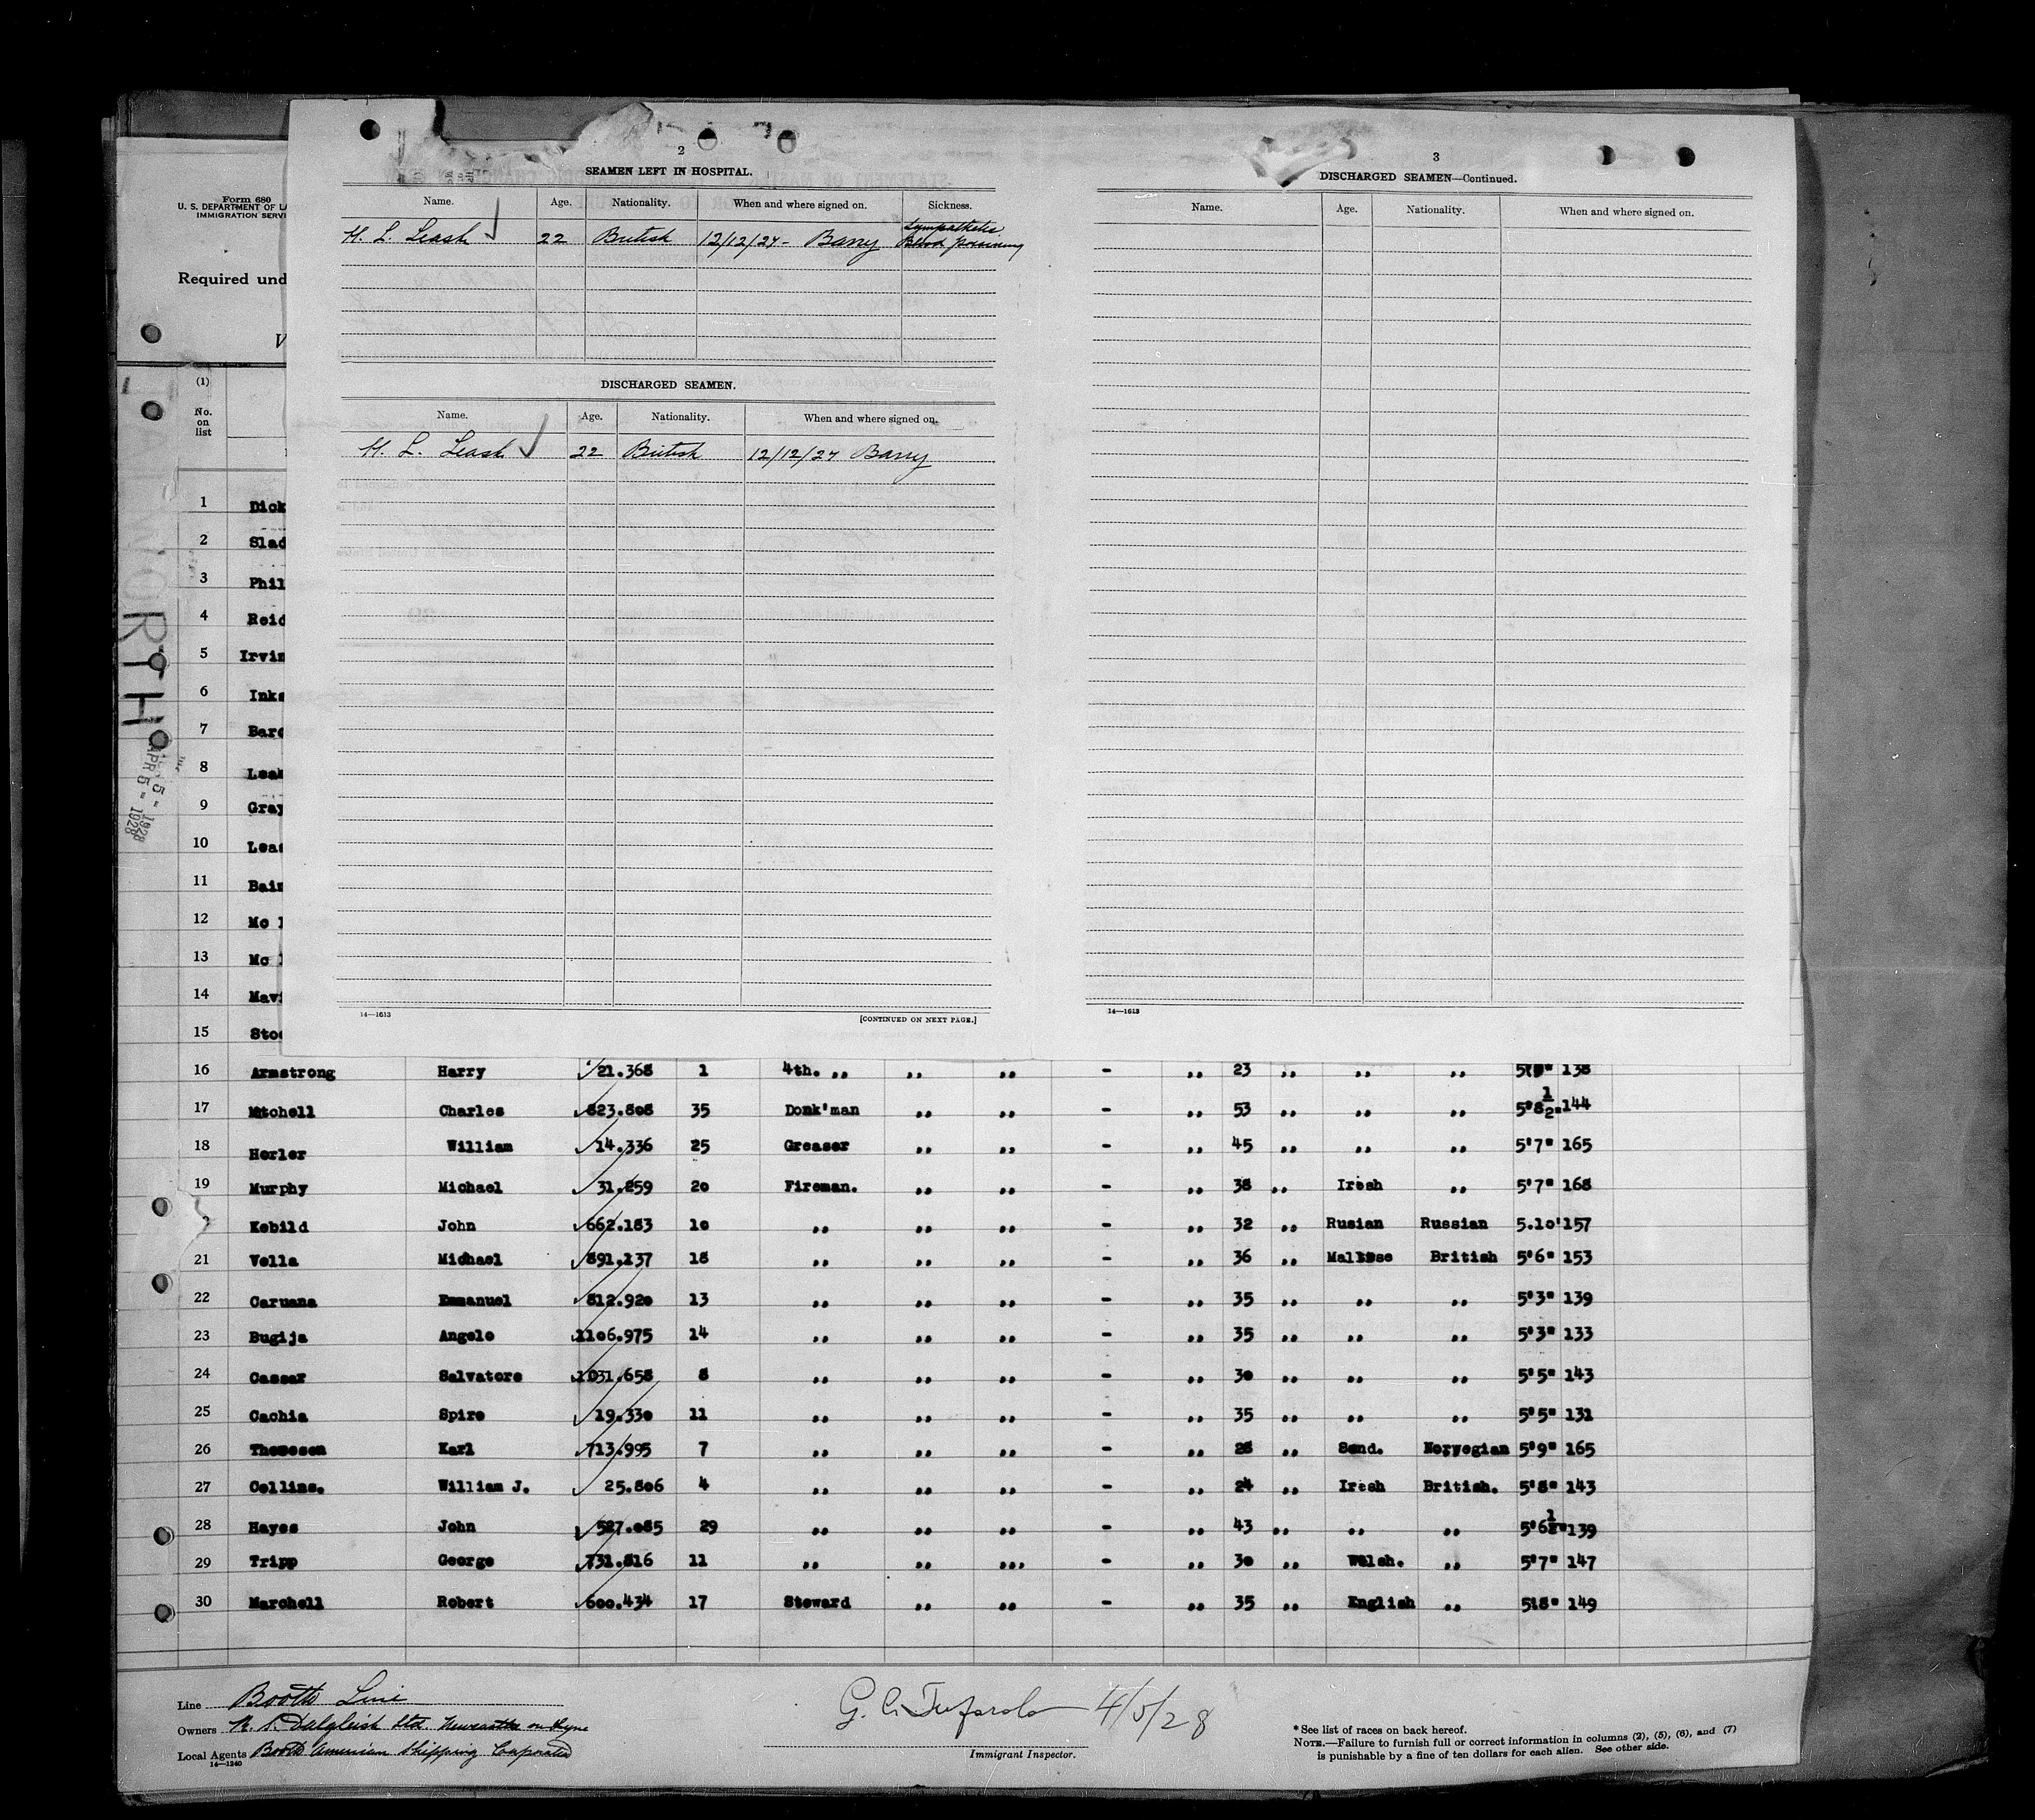 2
SEAMEN LEFT IN HOSPITAL.
Name. Age. Nationality. When and where signed on. Sickness.
H. L. Leash 22 British 12/12/27 - Barry Sympathetic Blood poisoning
DISCHARGED SEAMEN.
Name. Age. Nationality. When and where signed on.
H. L. Leash 22 British 12/12/27 Barry
14—1613 [CONTINUED ON NEXT PAGE.]
3
DISCHARGED SEAMEN—Continued.
Name. Age. Nationality. When and where signed on.
14—1613
Form 680
U. S. DEPARTMENT OF LA
IMMIGRATION SERVI
Required und
V
(1)
No. on list
WORTH
APR 5 - 1928
1 Dick
2 Slad
3 Phil
4 Reid
5 Irvin
6 Inks
7 Bard
8 Leak
9 Gray
10 Leas
11 Bain
12 Mc
13 Mc
14 Mavi
15 Stoc
16 Armstrong Harry 21.368 1 4th. ,, ,, ,, - ,, 23 ,, ,, ,, 138
17 Mtchell Charles 823.808 35 Donk'man ,, ,, - ,, 53 ,, ,, ,, 5'8½" 144
18 Herler William 14.336 25 Greaser ,, ,, - ,, 45 ,, ,, ,, 5'7" 165
19 Murphy Michael 31.259 20 Fireman. ,, ,, - ,, 38 ,, Iresh ,, 5'7" 168
Kebild John 662.183 10 ,, ,, ,, - ,, 32 ,, Rusian Russian 5.10' 157
21 Vella Michael 891.137 18 ,, ,, ,, - ,, 36 ,, Maltese British 5'6" 153
22 Caruana Emmanuel 812.920 13 ,, ,, ,, - ,, 35 ,, ,, ,, 5'3" 139
23 Bugija Angelo 1106.975 14 ,, ,, ,, - ,, 35 ,, ,, ,, 5'3" 133
24 Cassar Salvatore 1031.658 8 ,, ,, ,, - ,, 30 ,, ,, ,, 5'5" 143
25 Cachia Spiro 19.330 11 ,, ,, ,, - ,, 35 ,, ,, ,, 5'5" 131
26 Thomesen Karl 713.995 7 ,, ,, ,, - ,, 28 ,, Scnd. Norvegian 5'9" 165
27 Collins. William J. 25.806 4 ,, ,, ,, - ,, 24 ,, Iresh British. 5'8" 143
28 Hayes John 527.085 29 ,, ,, ,, - ,, 43 ,, ,, ,, 5'6½" 139
29 Tripp George 731.816 11 ,, ,, ,,, - ,, 30 ,, Welsh. ,, 5'7" 147
30 Marchell Robert 600.434 17 Steward ,, ,, - ,, 35 ,, English ,, 5'8" 149
Line Booth Line
Owners R. S. Dalgleish Ltd. Newcastle on Tyne
Local Agents Booth American Shipping Corporation
14—1240
G. C. 4/5/28
Immigrant Inspector.
* See list of races on back hereof.
NOTE.—Failure to furnish full or correct information in columns (2), (5), (6), and (7)
is punishable by a fine of ten dollars for each alien. See other side.